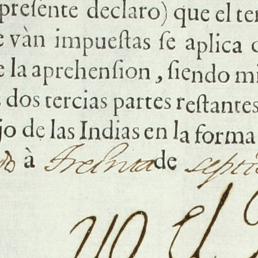 presente declaro) que el ter
e vàn impueſtas ſe aplica
e la aprehension, ſiendo mi
dos tercias partes reſtantes
jo de las Indias en la forma
do à Treinta de septi
YO el